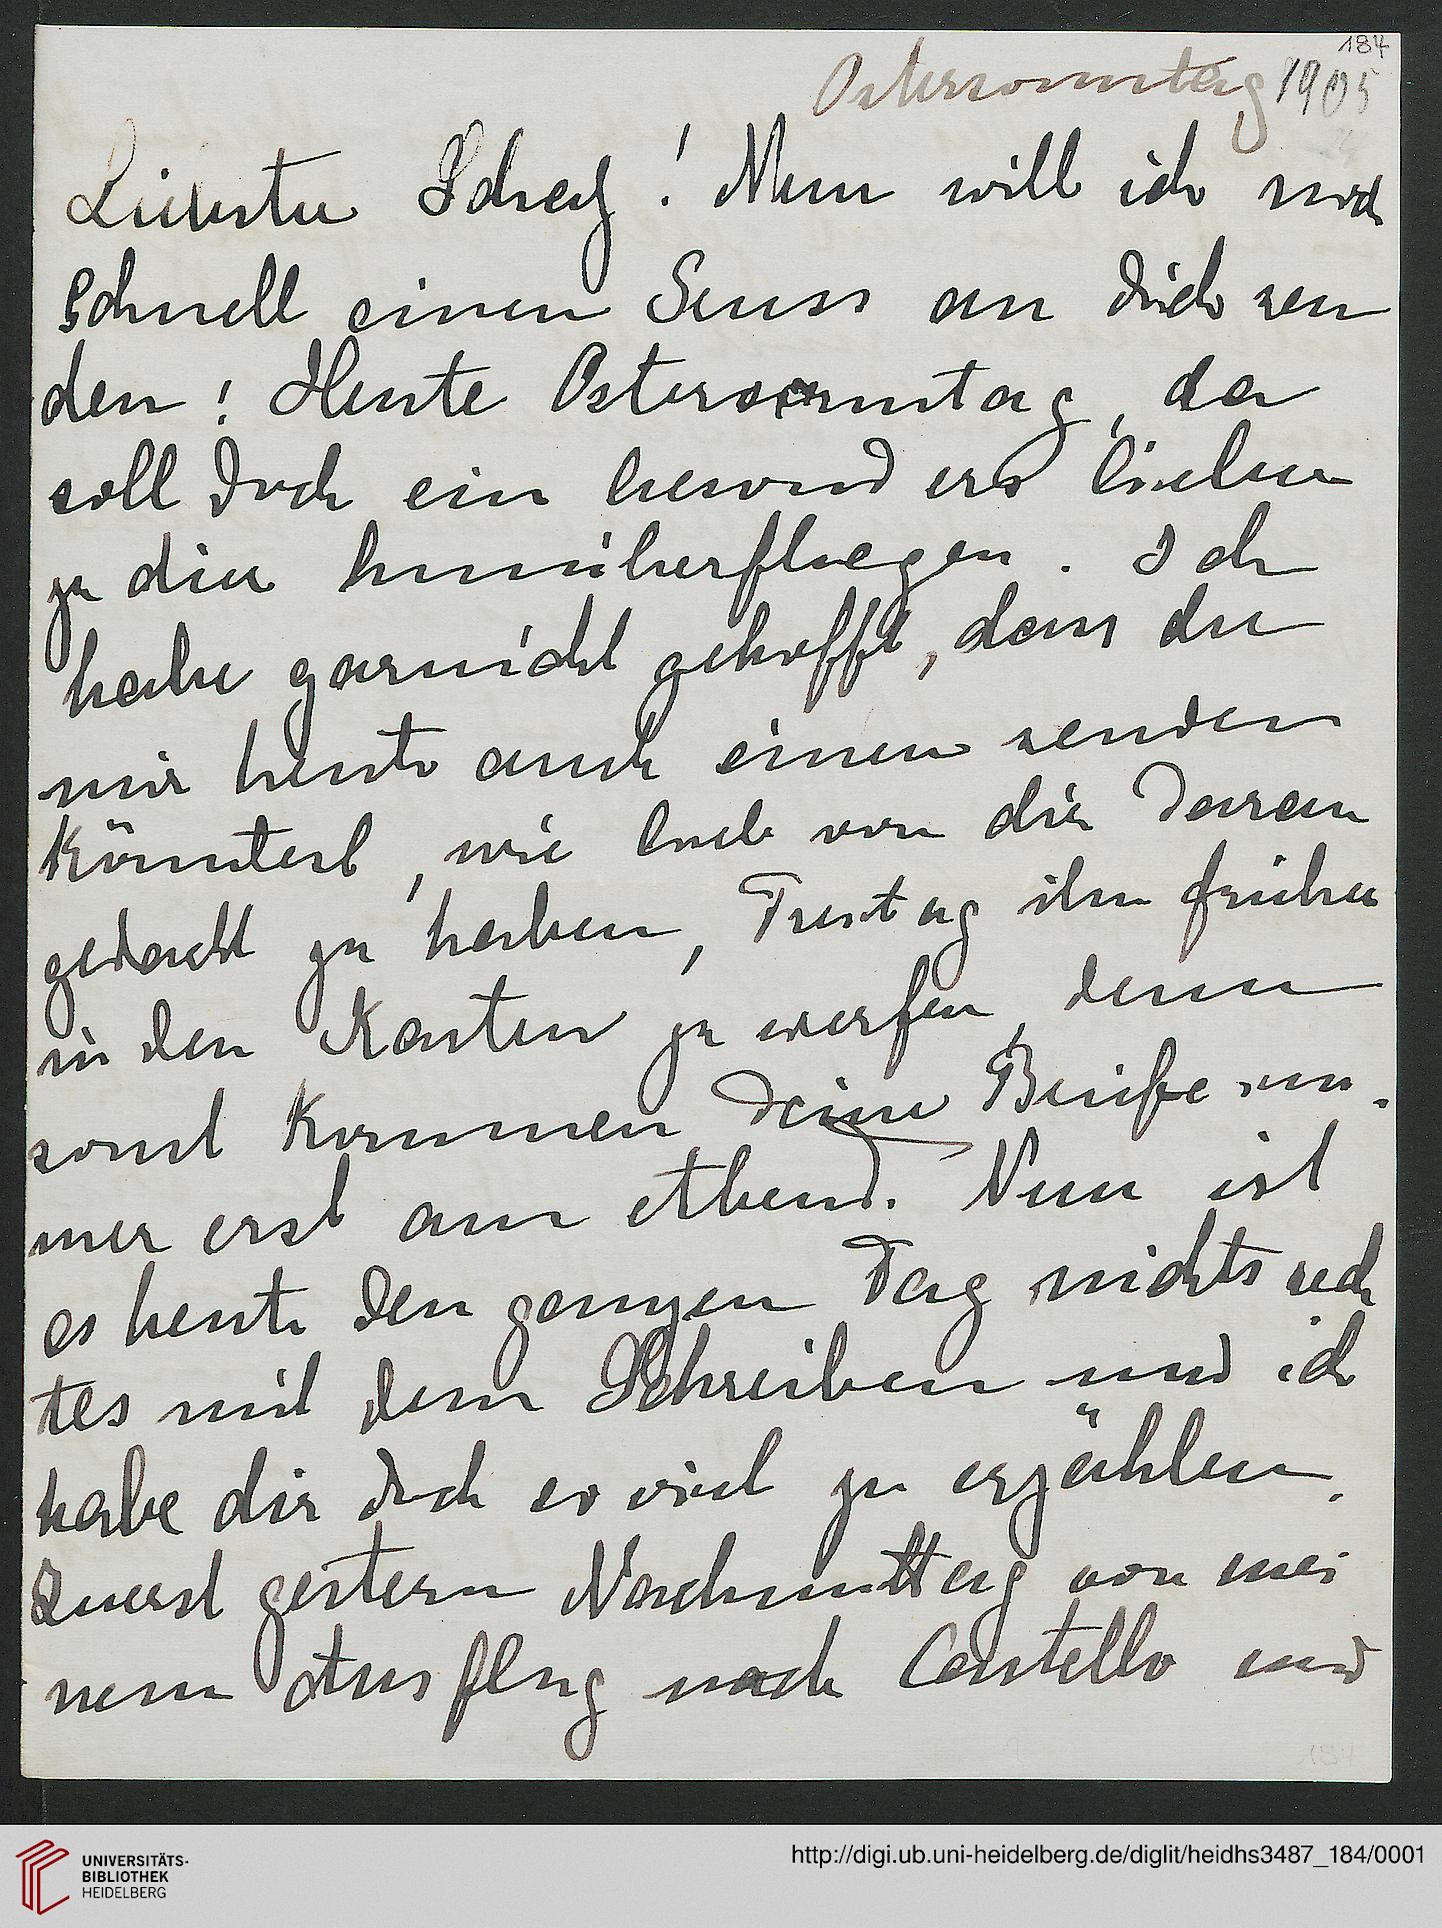 184
Ostersonntag 1905
Liebster Schatz! Nun will ich noch
schnell einen Gruss an dich sen
den! Heute Ostersonntag, da
soll doch ein besonders lieber
zu dir hinüberfliegen. Ich
habe garnicht gehofft, dass du
mir heute auch einen senden
könntest, wie lieb von dir daran
gedacht zu haben, Freitag ihn früher
in den Kasten zu werfen, denn
sonst kommen deine Briefe im-
mer erst am Abend. Nun ist
es heute den ganzen Tag nichts rech
tes mit dem Schreiben und ich
habe dir doch so viel zu erzählen.
Zuerst gestern Nachmittag von mei
nem Ausflug nach Castello und
184
UNIVERSITÄTS-
BIBLIOTHEK
HEIDELBERG
http://digi.ub.uni-heidelberg.de/diglit/heidhs3487_184/0001